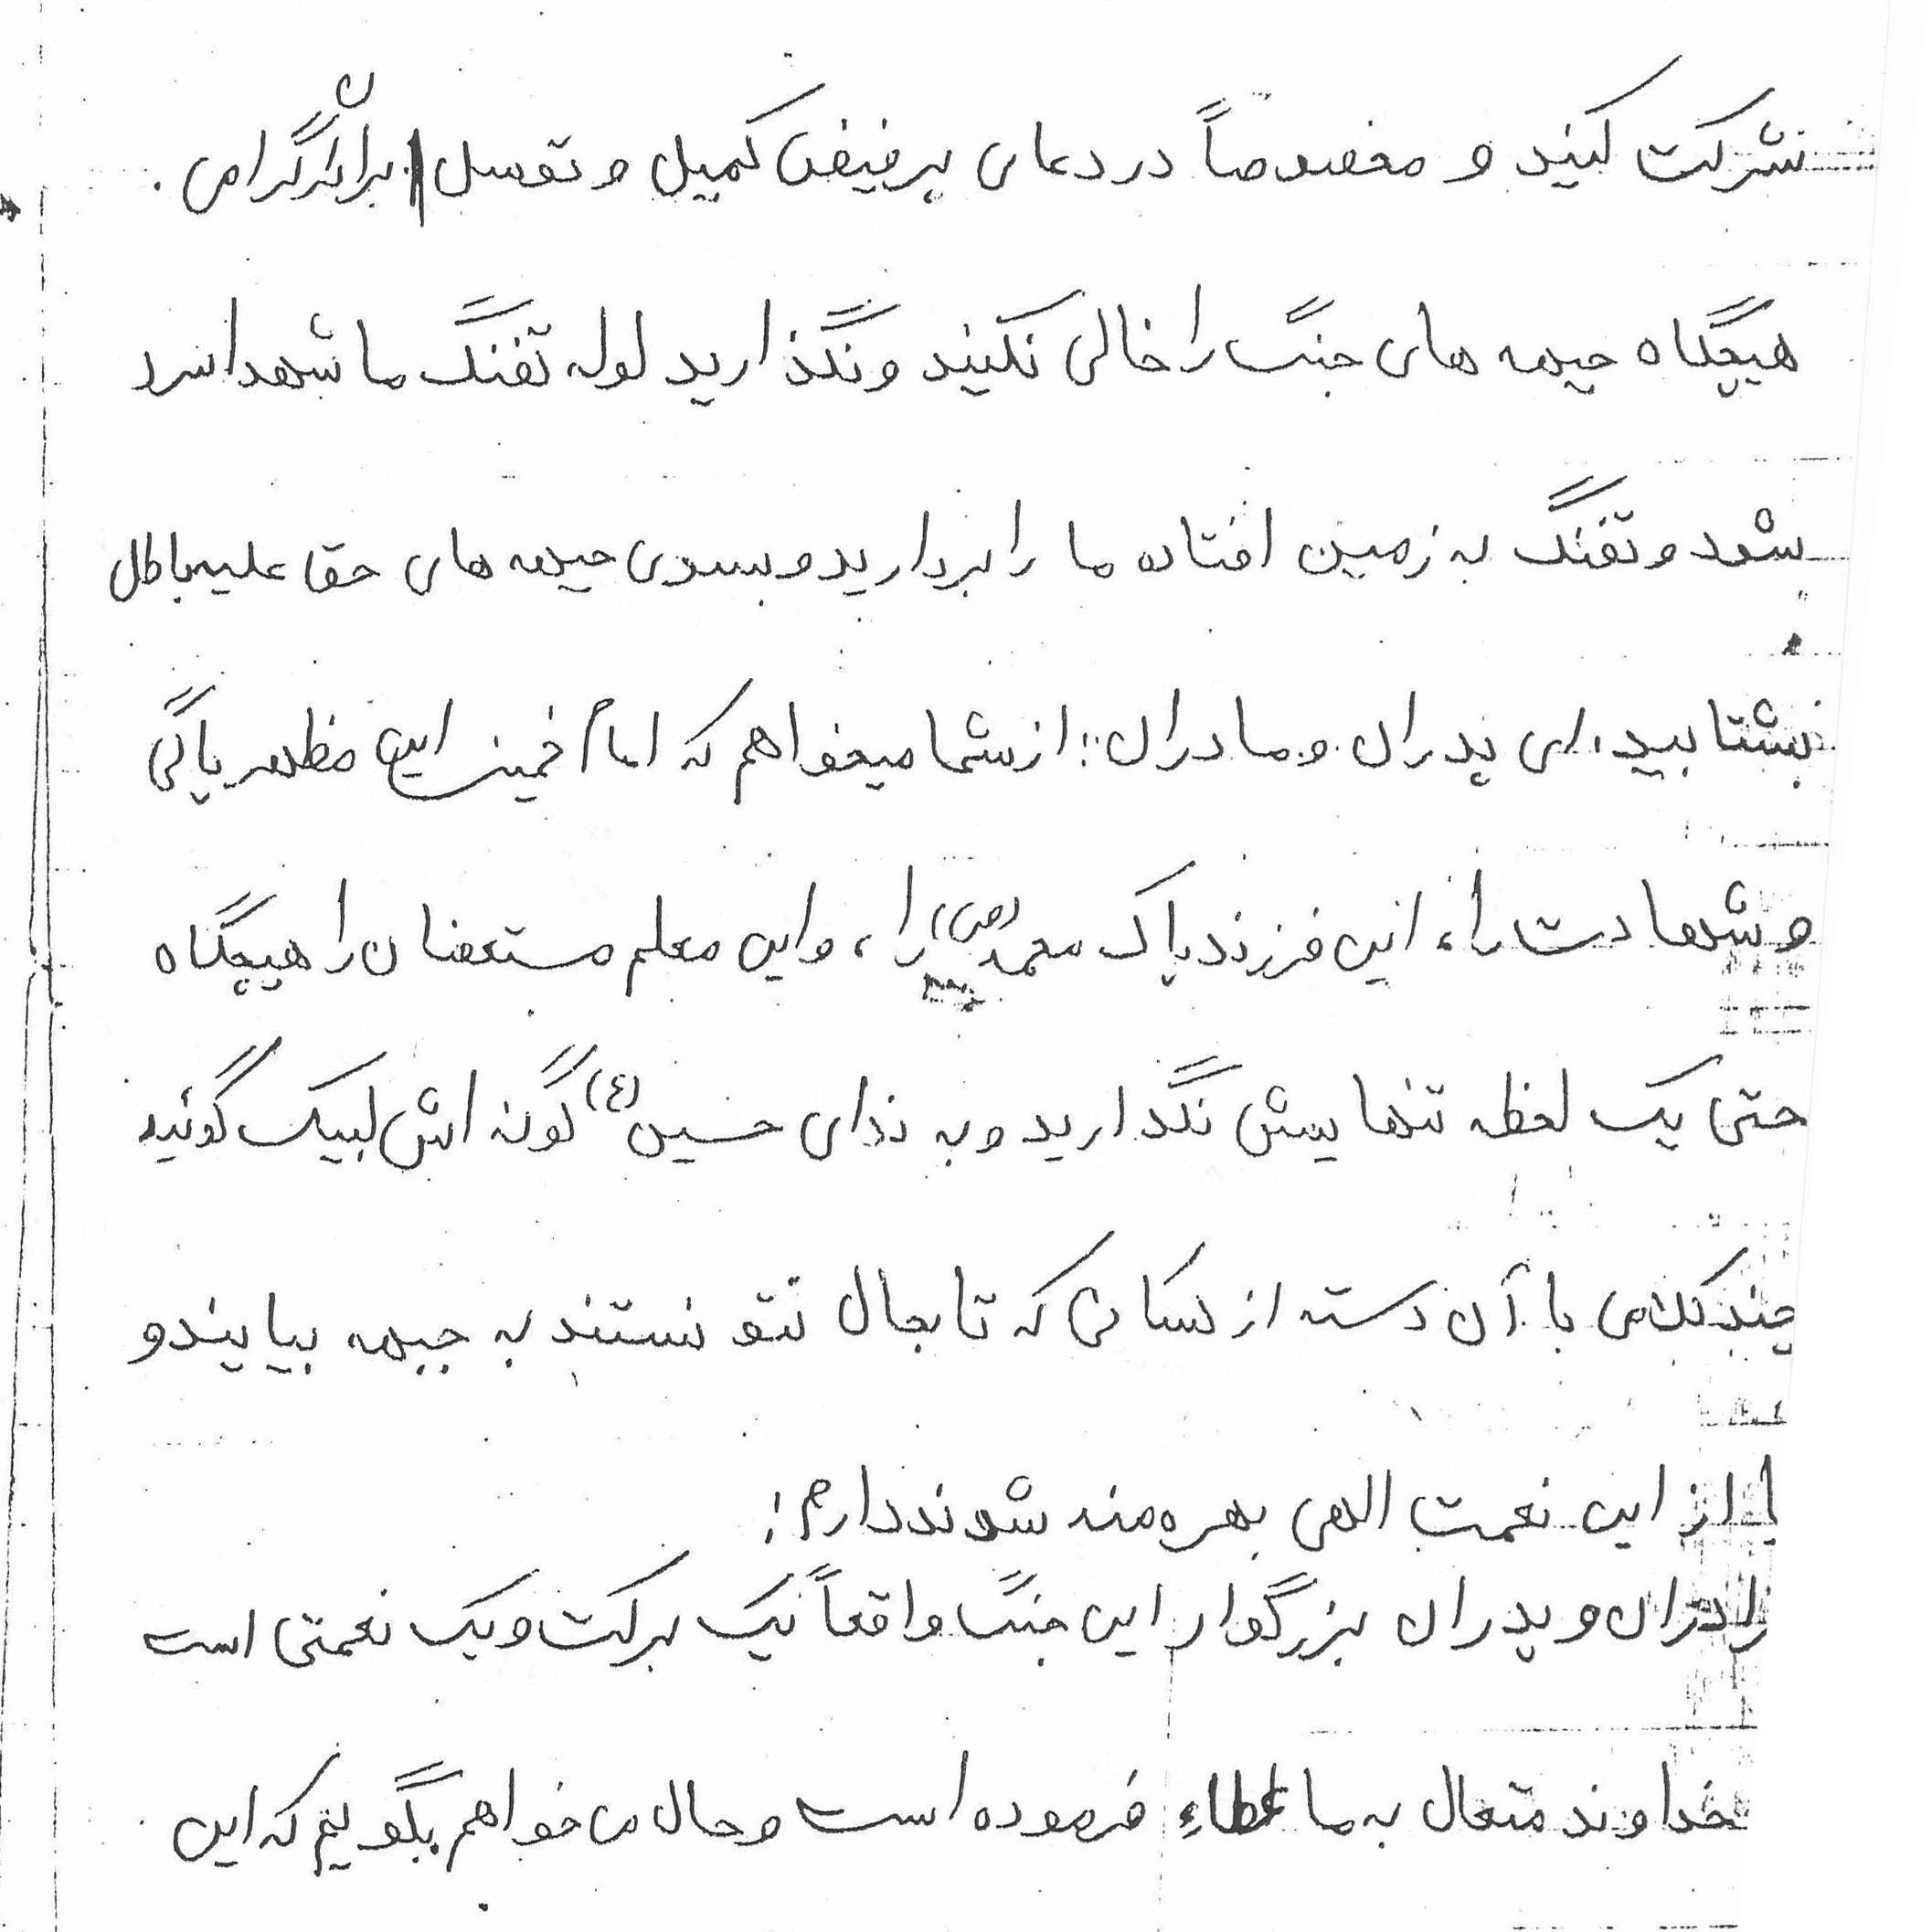 شرکت کنید و مخصوصاً در دعای پرفیض کمیل و توسل برادران گرامی .
هیچگاه جبهه های جنگ را خالی نکنید و نگذارید لوله تفنگ ما شهدا سرد
بشود و تفنگ به زمین افتاده ما را بردارید و بسوی جبهه های حق علیه باطل
بشتابید، ای پدران و مادران: از شما میخواهم که امام خمینی این مظهر پاکی
و شهادت را، این فرزند پاک محمد (ص) را، و این معلم مستعضفان را هیچگاه
حتی یک لحظه تنهایش نگذارید و به ندای حسین (ع) گونه اش لبیک گوئید
چند کلامی با آن دسته از کسانی که تا بحال نتونستند به جبهه بیایند و
از این نعمت الهی بهره مند شوند دارم:
مادران و پدران بزرگوار این جنگ واقعاً یک برکت و یک نعمتی است
خداوند متعال به ما عطاء فرموده است و حال می خواهم بگویم که این